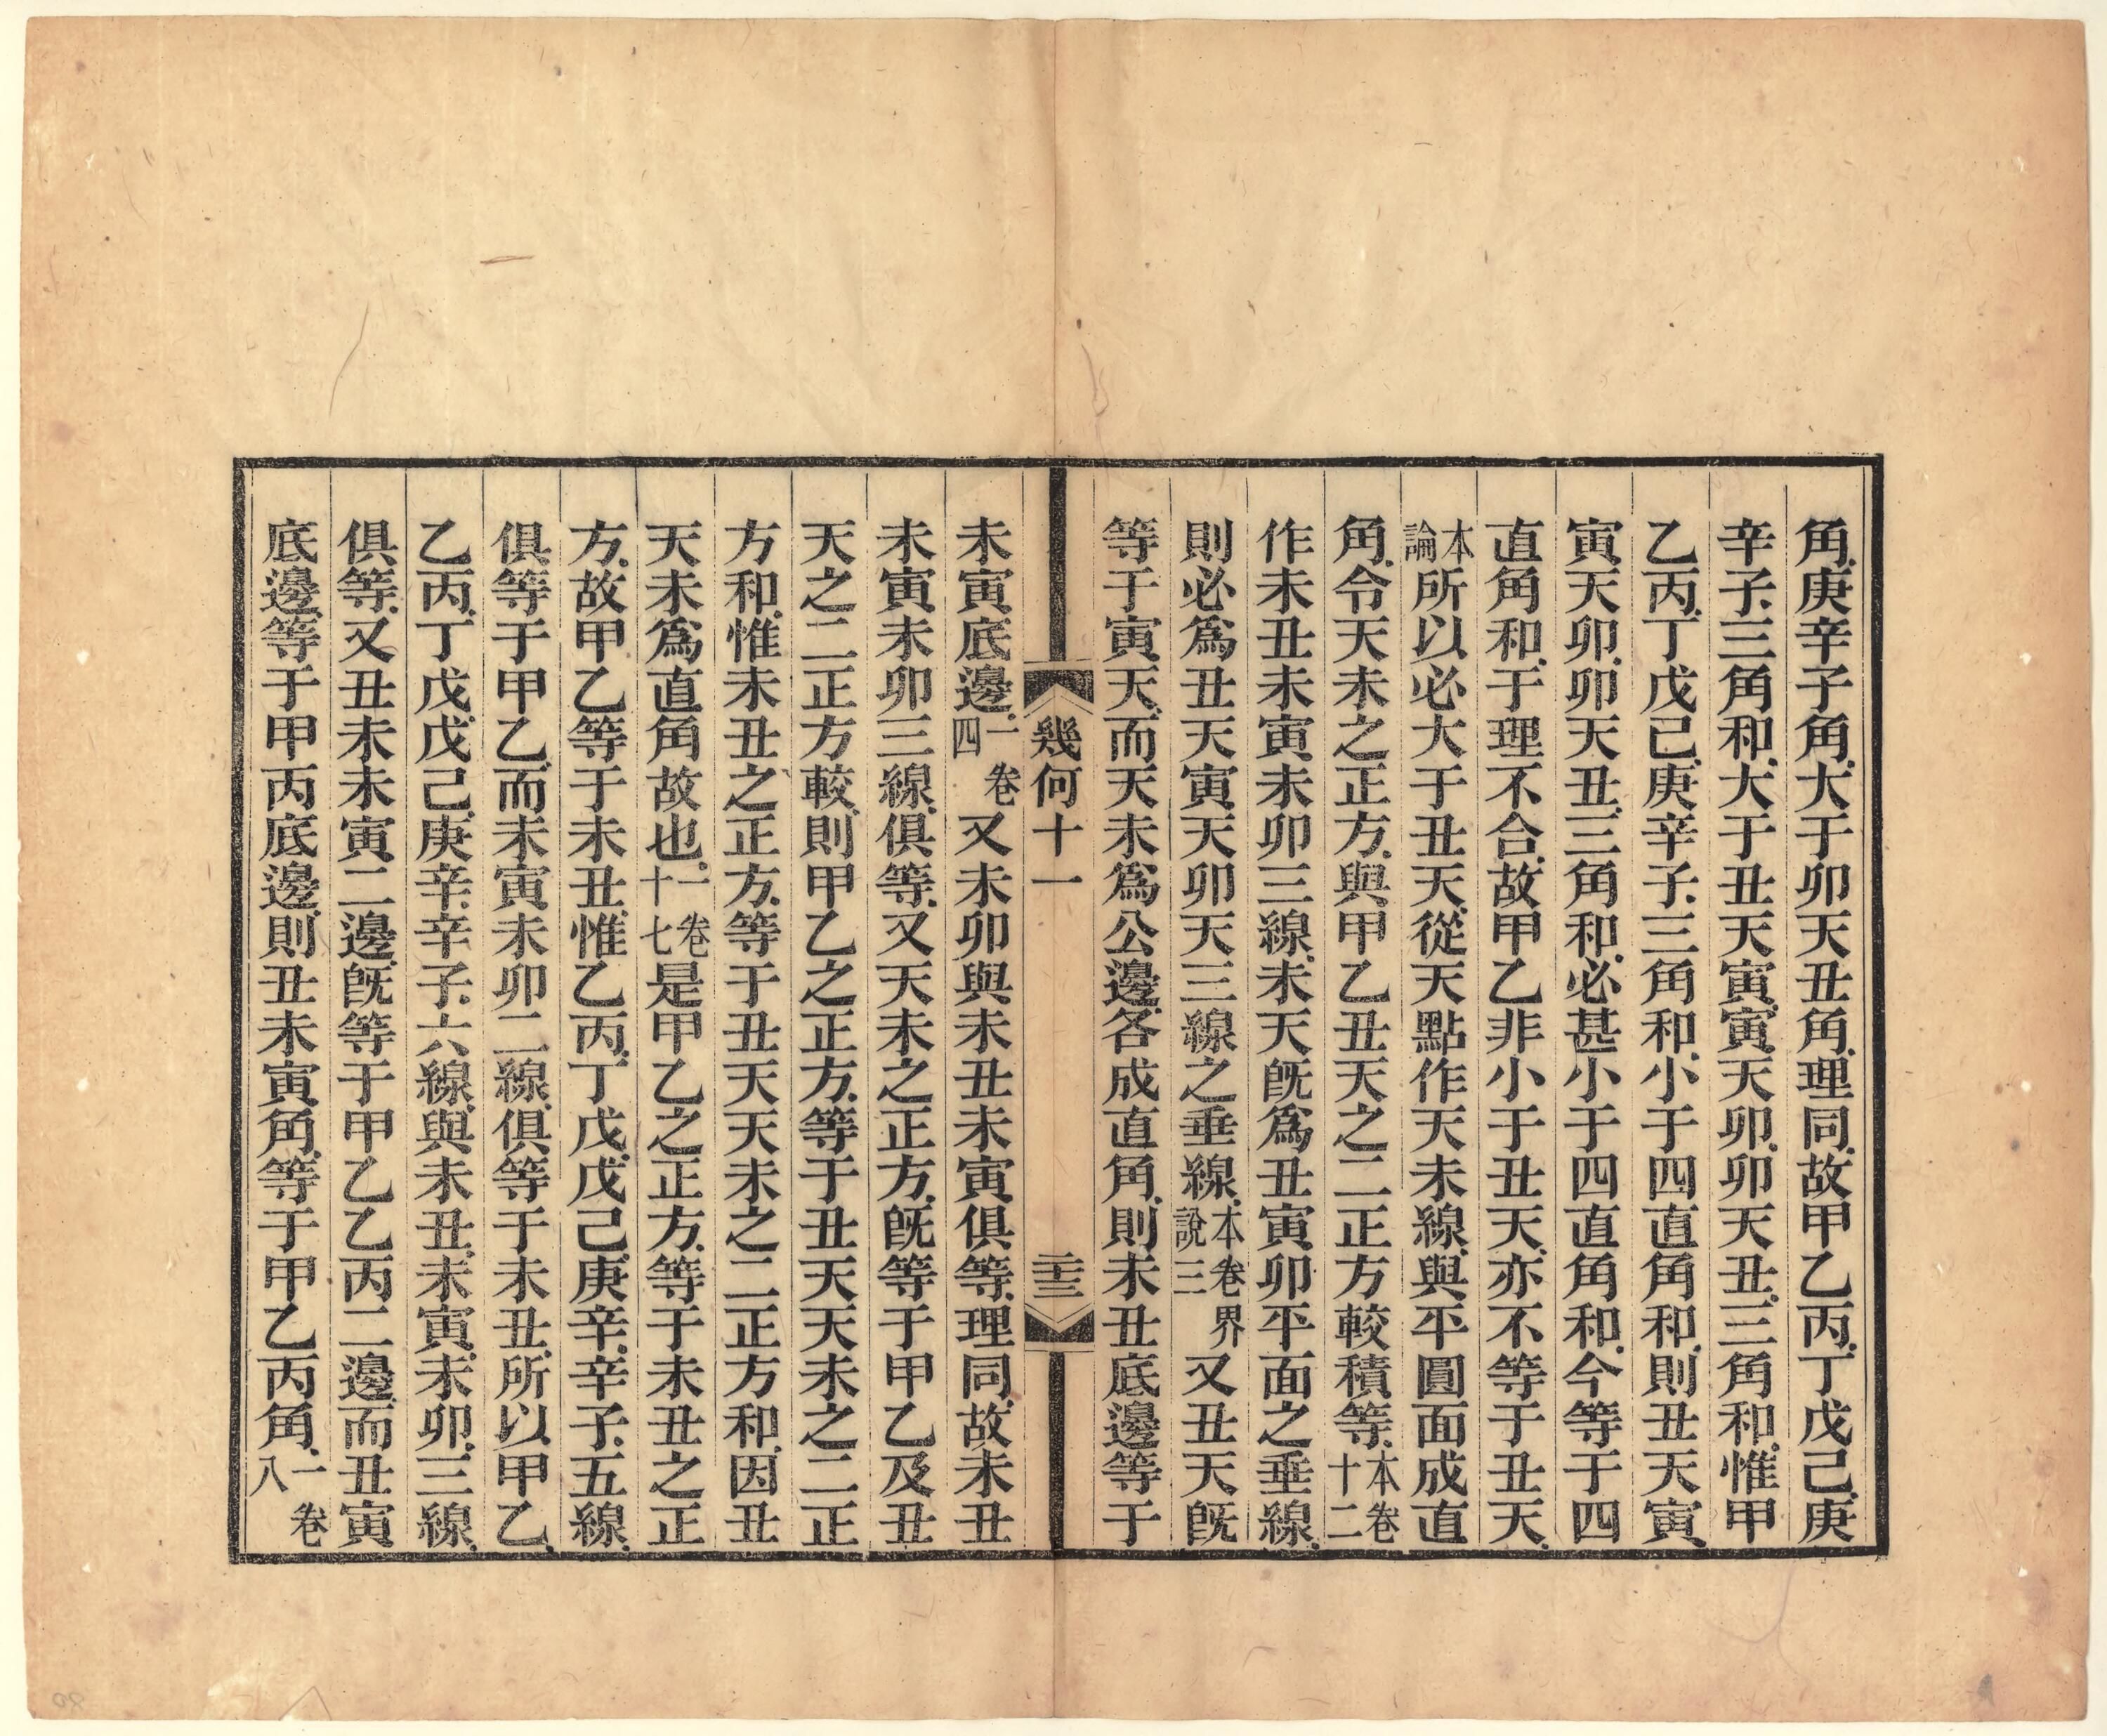 角庚辛子角大于卯天丑角理同故甲乙丙丁戊己庚
辛子三角和大于丑天寅寅天卯卯天丑三角和惟甲
乙丙丁戊己庚辛子三角和小于四直角和則丑天寅
寅天卯卯天丑三角和必甚小于四直角和今等于四
直角和于理不合故甲乙非小于丑天亦不等于丑天
本論所以必大于丑天從天點作天未線與平圓面成直
角令天未之正方與甲乙丑天之二正方較積等本卷十二
作未丑未寅未卯三線未天旣爲丑寅卯平面之垂線
則必爲丑天寅天卯天三線之垂線本卷界說三又丑天旣
等于寅天而天未爲公邊各成直角則未丑底邊等于
幾何十一
二十三
未寅底邊一卷四又未卯與未丑未寅俱等理同故未丑
未寅未卯三線俱等又天未之正方旣等于甲乙及丑
天之二正方較則甲乙之正方等于丑天天未之二正
方和惟未丑之正方等于丑天天未之二正方和因丑
天未爲直角故也一卷十七是甲乙之正方等于未丑之正
方故甲乙等于未丑惟乙丙丁戊戊己庚辛辛子五線
俱等于甲乙而未寅未卯二線俱等于未丑所以甲乙
乙丙丁戊戊己庚辛辛子六線與未丑未寅未卯三線
俱等又丑未未寅二邊旣等于甲乙乙丙二邊而丑寅
底邊等于甲丙底邊則丑未寅角等于甲乙丙角一卷八